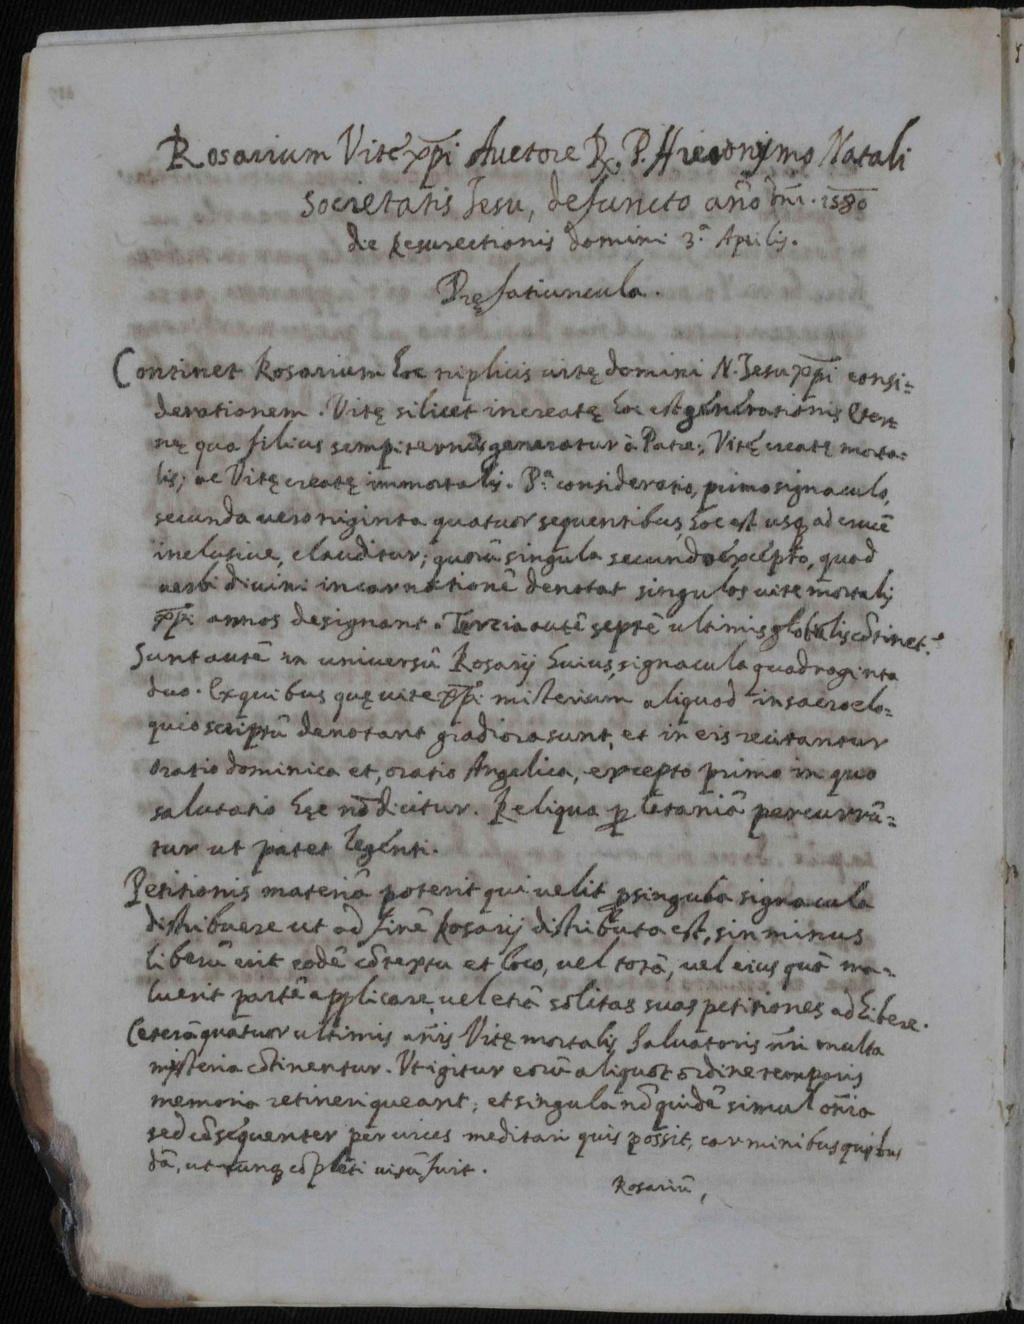 Rosarium Vitę xp̄i Auctore R. P. Hieronÿmo Natali
Societatis Jesu, defuncto año dñi. 1580
die Resurectionis domini 3ª Aprilis.
Pręfatiuncula.
Continet Rosarium hoc triplicis uitę domini N. Jesu xp̄i consi=
derationem. Vitę silicet increatę hoc est generationis Eter=
nę qua filius sempiternus generatur à Patre; Vitę creatę morta=
lis; ac Vitę creatę immortalis. Pª consideratio, primo signaculo,
secunda uero triginta quatuor sequentibus, hoc est usq̧ ad crucē
inclusiue, clauditur; quorū singula secundo excepto, quod
uerbi diuini incarnationē denotat singulos uitę mortalis
xp̄i annos designant. Tertia autē septē ultimis globulis cōtinet.r
Sunt autē in uniuersū Rosarij huius, signacula quadraginta
duo. Ex quibus quę uitę xp̄i misterium aliquod in sacro elo=
quio scriptū denotant grādiora sunt, et in eis recitantur
oratio dominica et, oratio Angelica, excepto primo in quo
salutatio hęc nō dicitur. Reliqua ꝑ letaniā percurrū=
tur ut patet legenti.
Petitionis materiā poterit qui uelit ꝑ singula signacula
distribuere ut ad finē Rosarij distributa est, sin minus
liberū erit eodē cōtextu et loco, uel totā, uel eius quā ma=
luerit partē applicare, uel etiā solitas suas petitiones adhibere.
Ceterū quatuor ultimis añis Vitę mortalis Saluatoris ñri multa
mysteria cōtinentur. Vt igitur eorū aliquot ordine temporis
memoria retineri queant, et singula nō quidē simul omīa
sed cōsequenter per uices meditari quis possit, carminibus quibus
dā, ut cunq̧ cōplecti uisū fuit.
Rosariū,